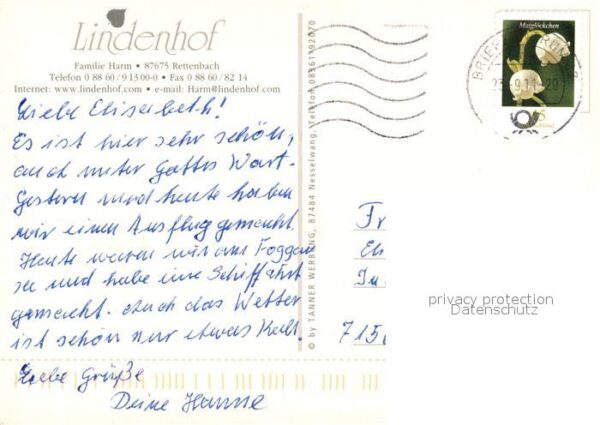 Lindenhof
Familie Harm • 87675 Rettenbach
Telefon 0 88 60 / 9 13 00-0 • Fax 0 88 60 / 82 14
Internet: www.lindenhof.com • e-mail: Harm@lindenhof.com
Liebe Elisabeth!
Es ist hier sehr schön,
auch unter Gottes Wort.
Gestern und heute haben
wir einen Ausflug gemacht.
Heute waren wir am Foggen
see und habe ine Schiffahrt
gemacht. Auch das Wetter
ist schön nur etwas Kalt.
Liebe Grüße
Deine Hanne
© by TANNER WERBUNG, 87484 Nesselwang, Telefon 08361/92070
Maiglöckchen
BRIEF
Fr
El
In
715
privacy protection
Datenschutz